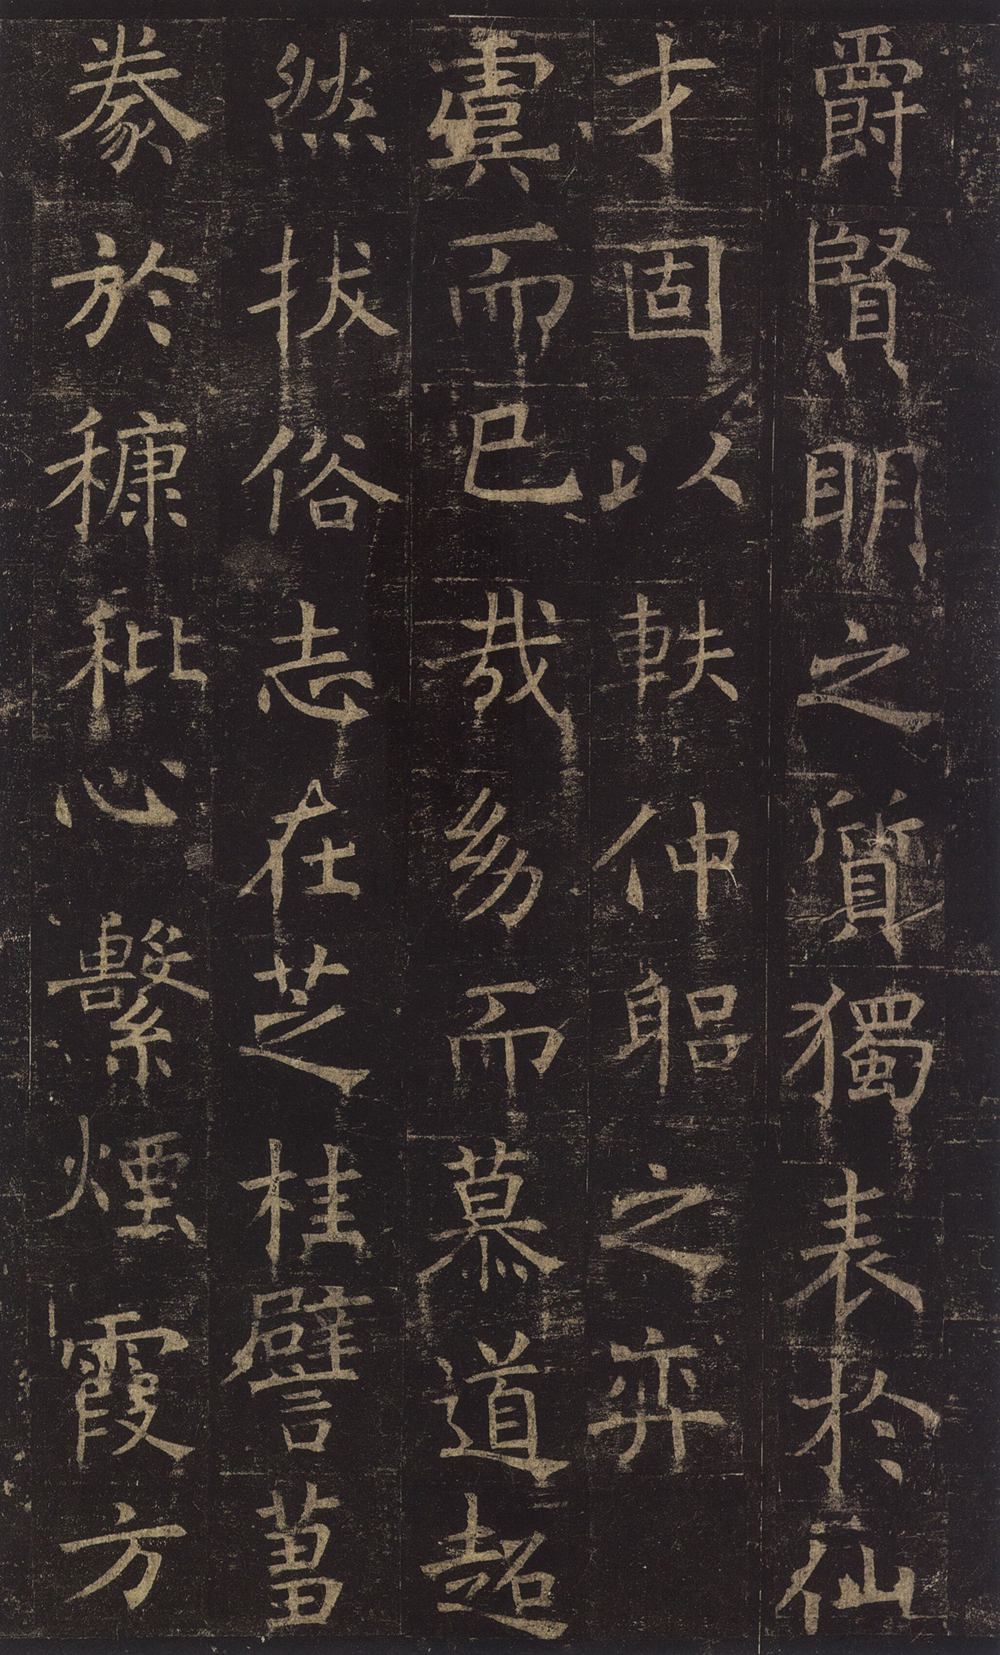 爵賢明之質獨表於仙
才固以軼仲躳之弈
虞而已哉幼而慕道超
然拔俗志在芝桂譬蒭
豢於穅秕心繫煙霞方